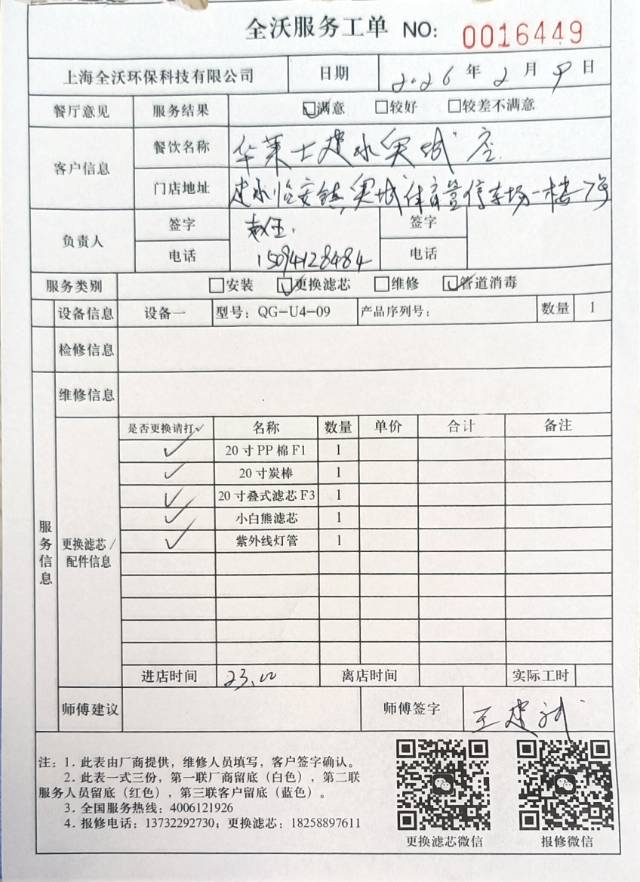 全沃服务工单 NO: 0016449
上海全沃环保科技有限公司 日期 2026年2月9日
餐厅意见 服务结果 ☑满意 □较好 □较差不满意
客户信息 餐饮名称 华莱士建水奥城店
门店地址 建水临安镇奥城体育馆停车场一楼
负责人 签字 签字
电话 15094128484 电话
服务类别 □安装 ☑更换滤芯 □维修 ☑管道消毒
设备信息 设备一 型号：QG-U4-09 产品序列号： 数量 1
检修信息
维修信息
服务信息
更换滤芯/配件信息
是否更换请打✓ 名称 数量 单价 合计 备注
✓ 20寸PP棉F1 1
✓ 20寸炭棒 1
✓ 20寸叠式滤芯F3 1
✓ 小白熊滤芯 1
✓ 紫外线灯管 1
进店时间 23.00 离店时间 实际工时
师傅建议 师傅签字 王建斌
注：1．此表由厂商提供，维修人员填写，客户签字确认。
2．此表一式三份，第一联厂商留底（白色），第二联
服务人员留底（红色），第三联客户留底（蓝色）。
3．全国服务热线：4006121926
4．报修电话：13732292730；更换滤芯：18258897611
更换滤芯微信 报修微信